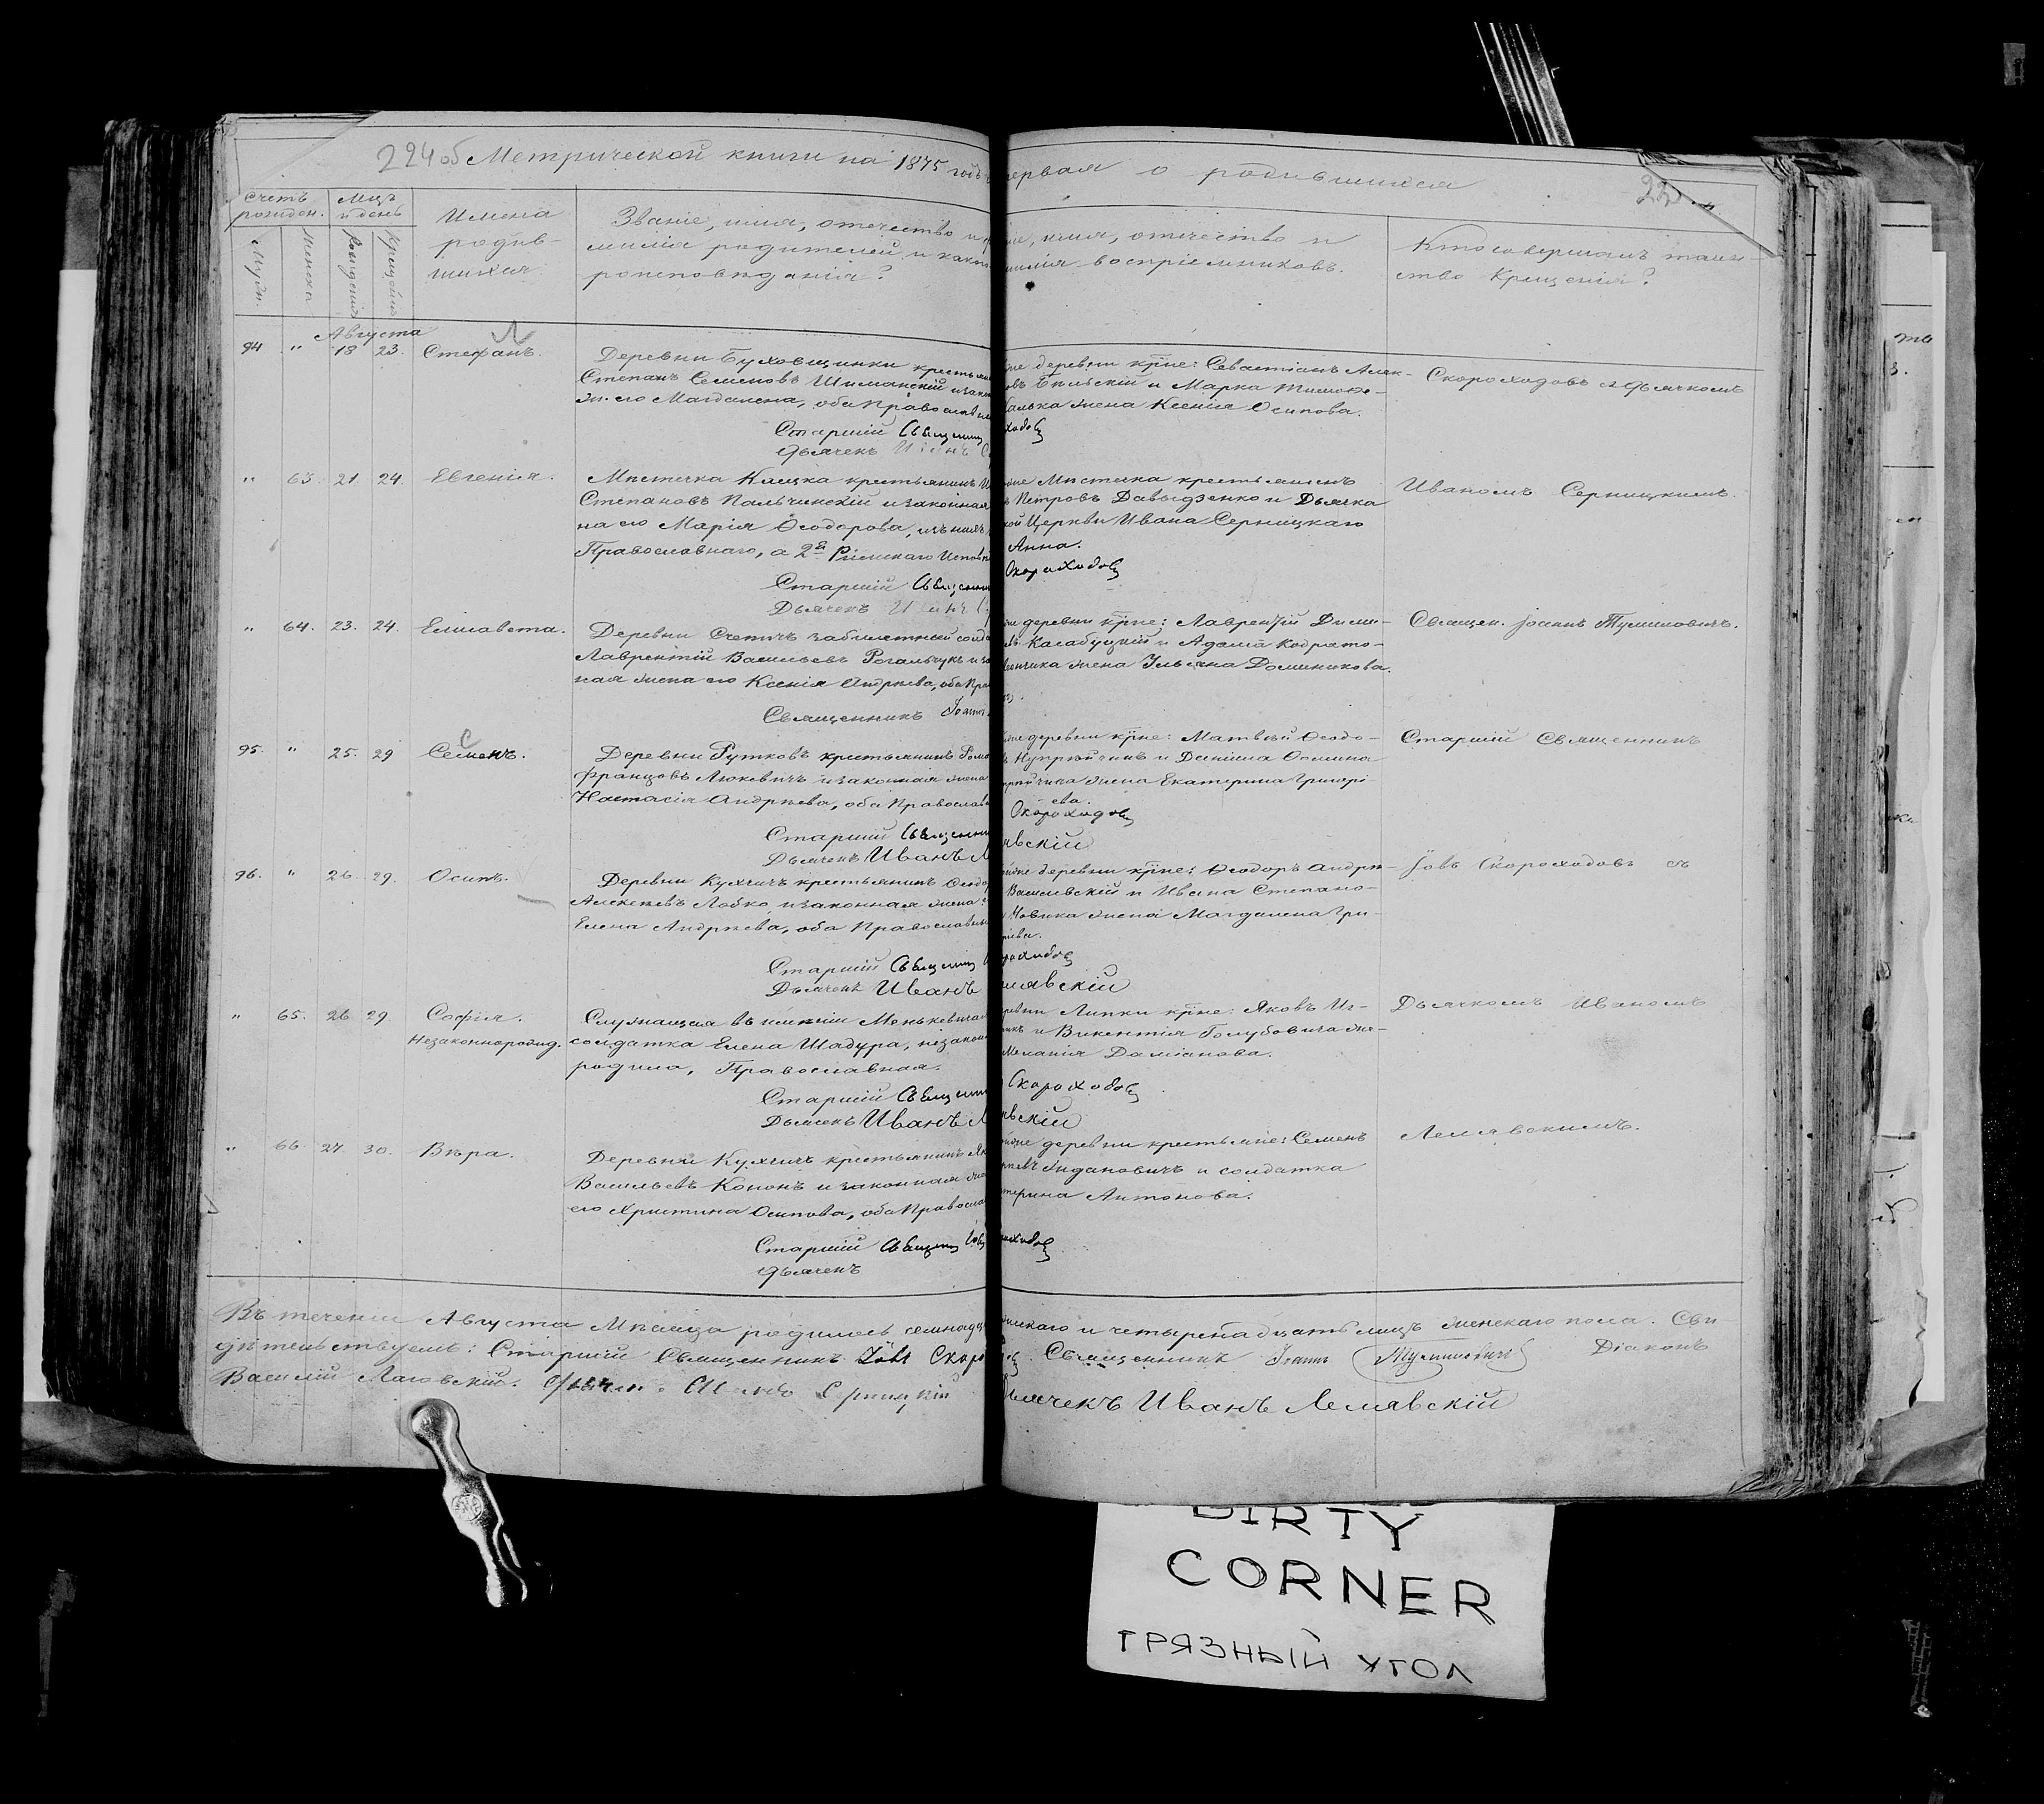 224 об Метрической книги на 1875 годъ
первая о родившихся
Счетъ рожден.
Мцъ и день
Мужс.
Женска
Рожденія
Крещенія
Имена
родив-
шихся.
Званіе, имя, отечество и
милія родителей, и какого
роисповѣданія?
имя, отчество и
милія воспріемниковъ.
Кто совершалъ таин-
ство Крещенія?
Августа
94 " 18 23. Стефанъ.
Деревни Буховщинки крестьян
Степанъ Семеновъ Шиманскій и закон
ж. его Магдалена, оба православн
Старшій Священ
Дьячекъ
деревни кр̃не: Севастіанъ Алек-
овъ Бильскій и Марка Тимоѳе-
жена Ксенія Осипова.
ходовъ
Скороходовъ с дьячкомъ
" 63. 21 24. Евгенія.
Мѣстечка Клецка крестьянинъ
Степановъ Пальчинскій и законная
на его Марія Ѳеодорова, изъ нихъ
Православнаго, а 2й Римскаго Исповѣ
Старшій Священ
Дьячекъ
Мѣстечка крестьянинъ
Петровъ Давыдзенко и Дьячка
кой Церкви Ивана Серницкаго
Анна.
Скороходовъ
Иваномъ Серницкимъ.
" 64. 23. 24. Елисавета.
Деревни Счетичъ забилетный солд
Лаврентій Васильевъ Рогальчукъ и за
ная жена его Ксенія Андреева, оба Пра
Священникъ Іоаннъ
деревни кр̃не: Лаврентій Дими-
Касабуцкій и Адама Кодрато-
жена Ульяна Доминикова.
Священ. Іоаннъ Тулиновичъ.
95. " 25. 29 Семенъ.
Деревни Рутковъ крестьянинъ Рома
Францовъ Люкевичъ и законная жена
Настасія Андреева, оба Православн
Старшій Священ
Дьячекъ Иванъ Л
деревни кр̃не: Матвей Ѳеодо-
и Даніила Осипова
жена Екатерина Григорі
ева.
Скороходовъ
явскій
Старшій Священникъ
96. " 26. 29. Осипъ.
Деревни Кухчичъ крестьянинъ Ѳеодо
Алексеевъ Лобко, и законная жена
Елена Андреева, оба Православны
Старшій Священ
Дьячекъ Иванъ
деревни кр̃не: Ѳеодоръ Андре-
Василевскій и Ивана Степано-
Новика жена Магдалена Гри-
рьева.
роходовъ
млявскій
Іовъ Скороходовъ съ
" 65. 26 29. Софія.
Незаконнорожд.
Служащая въ имѣніи Менькевича
солдатка Елена Шадура, незакон
родила, Православная.
Старшій Священ
Дьячекъ Иванъ Л
ревни Липки кр̃не: Яковъ Иг-
и Викентія Голубовича же-
Меланія Даміанова.
Скороходовъ
явскій
Дьячкомъ Иваномъ
" 66. 27. 30. Вѣра.
Деревни Кухчичъ крестьянинъ Як
Васильевъ Кононъ и законная же
его Христина Осипова, оба Правосла
Старшій Священ Іовъ
Дьячекъ
деревни крестьяне: Семенъ
Ждановичъ и солдатка
терина Антонова.
роходовъ
Лемявскимъ.
Въ теченіи Августа Мѣсяца родилось семнадц
жскаго и четырёнадцать лицъ женскаго пола. Сви
дѣтельствуемъ: Старшій Священникъ Іовъ Скоро
Священникъ Іоаннъ Тулиновичъ Діаконъ
Василій Лаговскій. Дьячекъ Иванъ Серницкій
Дьячекъ Иванъ Лемявскій
DIRTY
CORNER
ГРЯЗНЫЙ УГОЛ